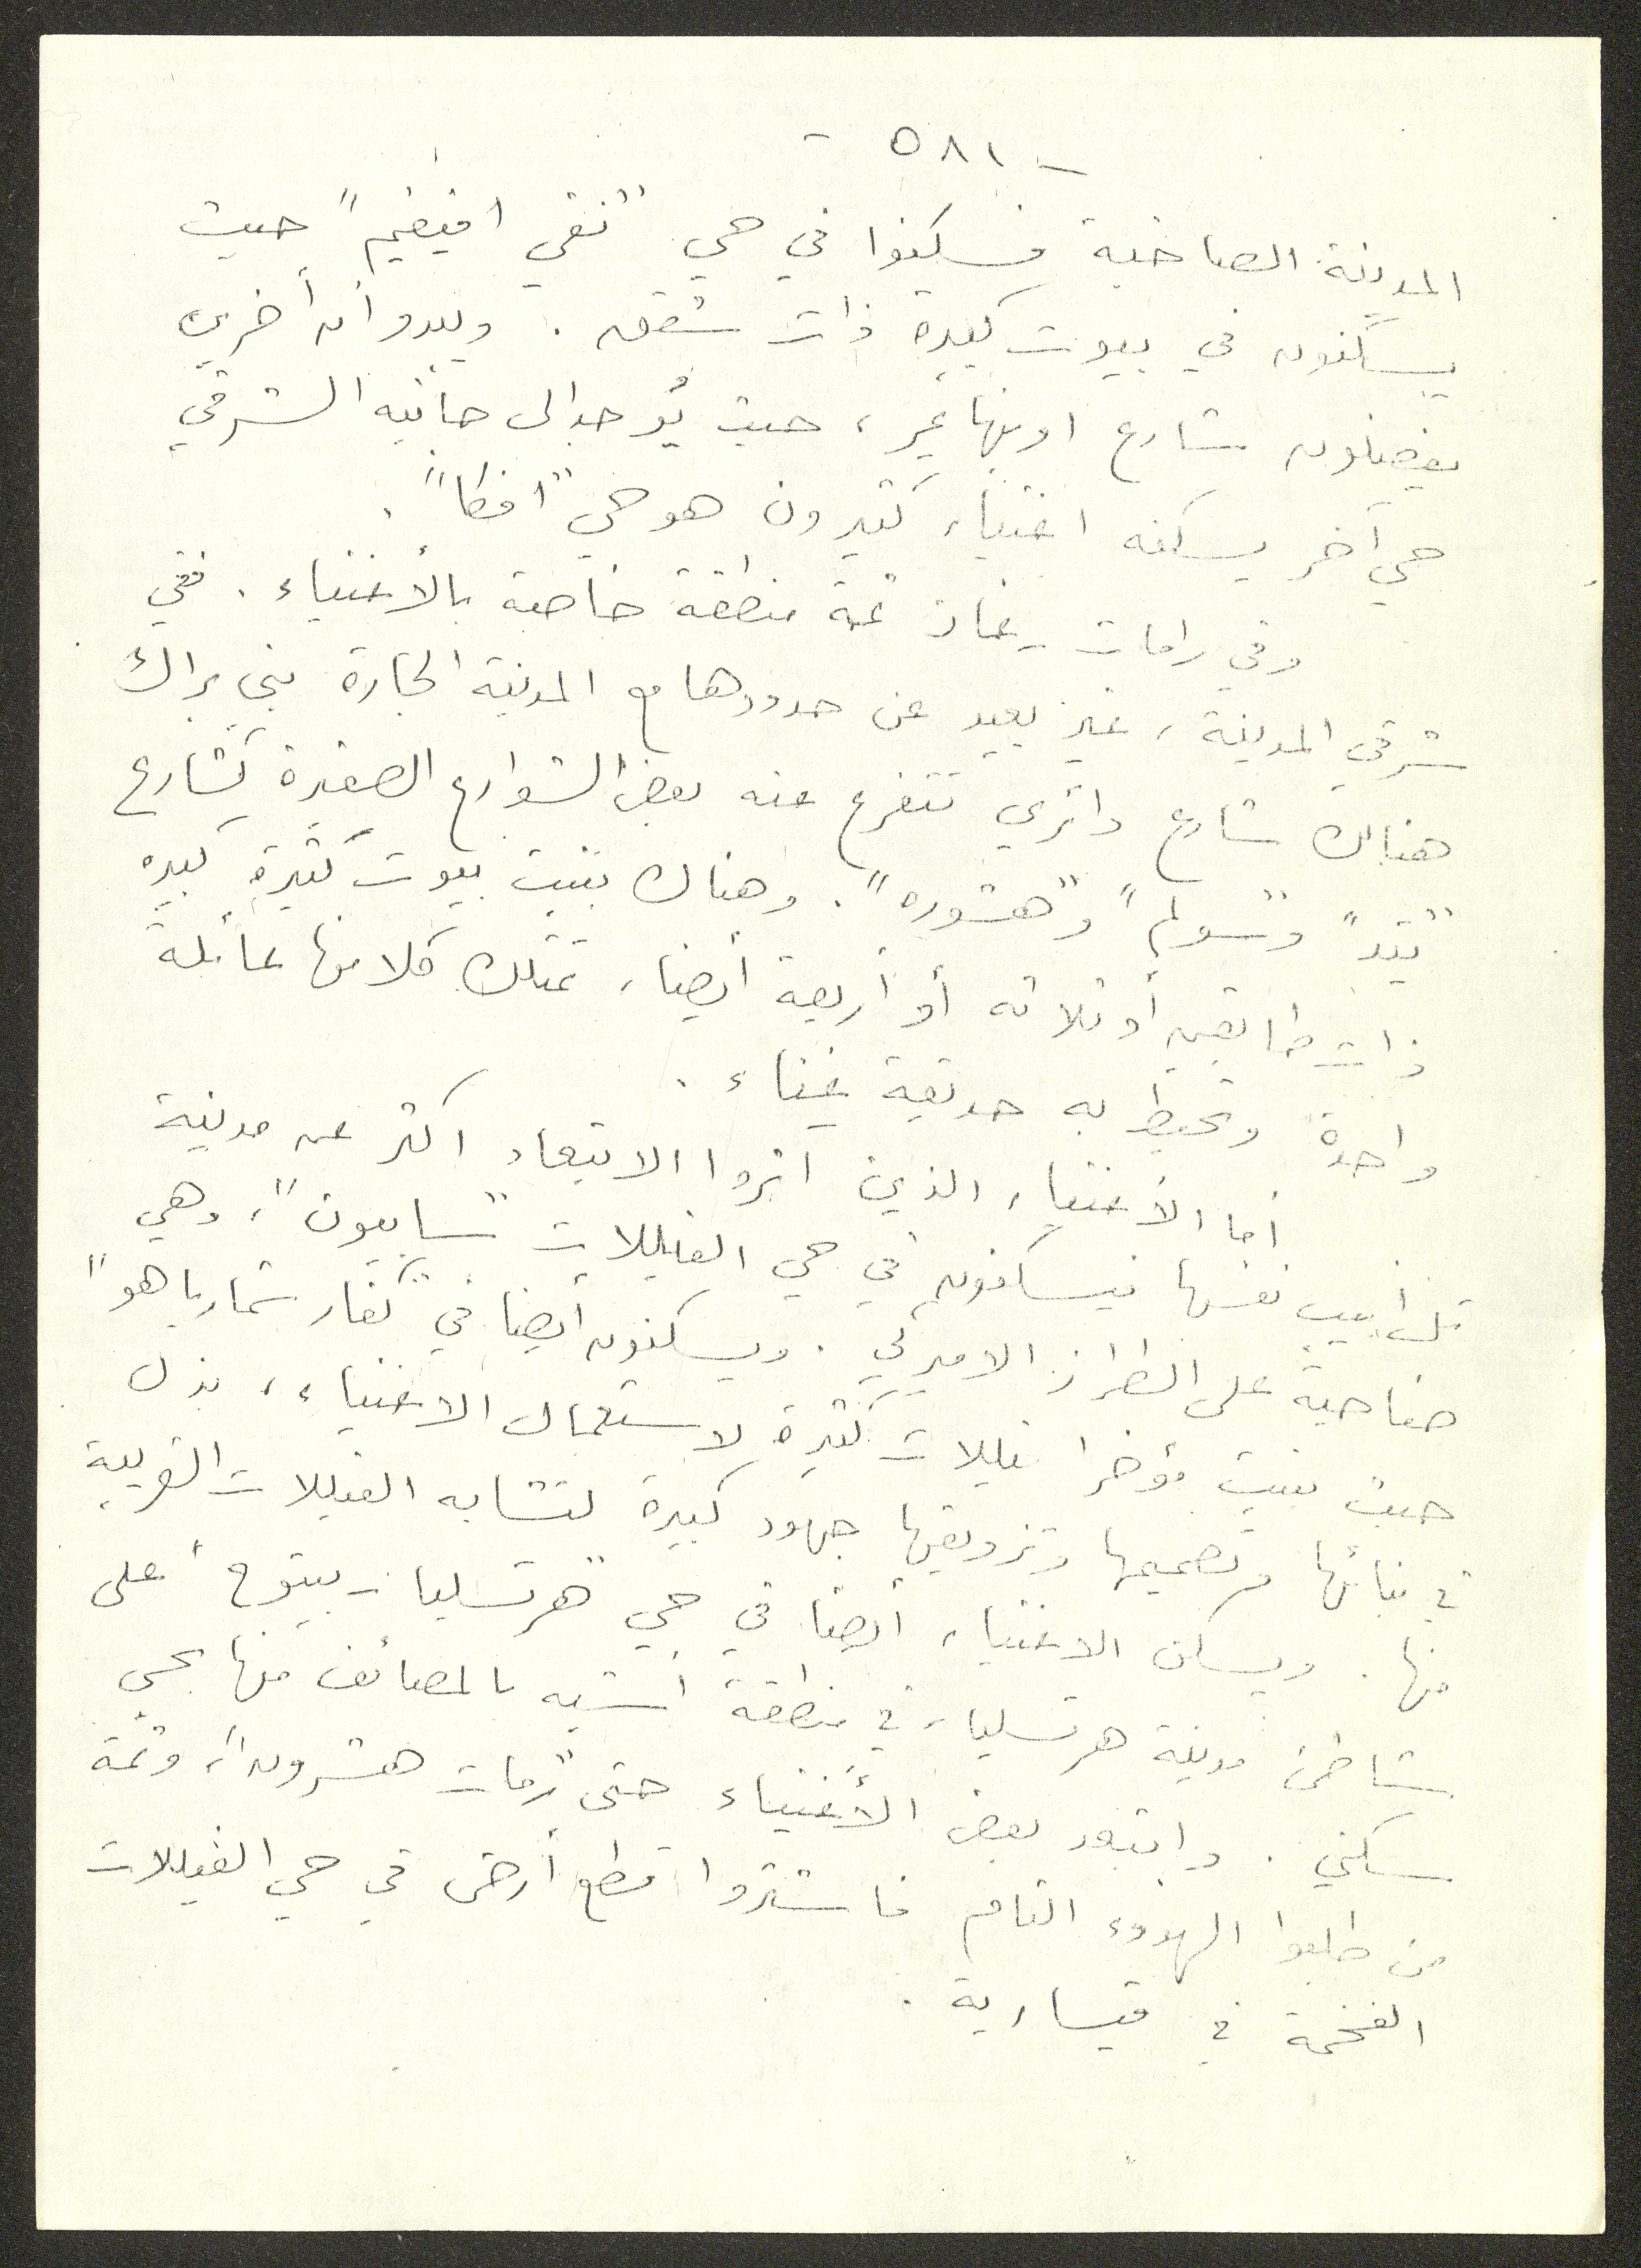 - ٥٨١ -
المدينة الصاخبة فسكنوا في حي "نفي افيفيم" حيث
يسكنون في بيوت كبيرة ذات شقق . ويبدو أن أخرين
يفضلون شارع اوبنهايمر ، حيث يُوجد الى جانبه الشرقي
حي آخر يسكنه اغنياء كثيرون هو حي "افكا" .
وفي رامات - غان ثمة منطقة خاصة بالأغنياء . ففي
شرقي المدينة ، غير بعيد عن حدودها مع المدينة الجارة بني براك
هناك شارع دائري تتفرع عنه بعض الشوارع الصغيرة كشارع
"يتد" و"سولم" و"هشوره" . وهناك بنيت بيوت كثيرة كبيره
ذات طابقين أو ثلاثه أو أربعة أيضا ، تمتلك كلا منها عائلة
واحدة وتحيط به حديقة غناء .
أما الأغنياء الذين اثروا الابتعاد اكثر عن مدينة
تل أبيب نفسها فيسكنون في حي الفيللات "سابيون" ، وهي
ضاحية على الطراز الاميركي . ويسكنون أيضا في "كفار شمارياهو"
حيث بنيت مؤخرا فيللات كثيرة لاستعمال الاغنياء ، بذل
في بنائها وتصميمها وتزويقها جهود كبيرة لتشابه الفيللات الغربية
منها . ويسكن الاغنياء أيضا في حي "هرتسليا - بيتوح" على
شاطئ مدينة هرتسليا ، في منطقة أشبه بالمصائف منها بحي
سكني . وابتعد بعض الأغنياء حتى "رمات هشرون" ، وثمة
من طلبوا الهدوء التام فاشتروا قطع أرض في حي الفيللات
الفخمة في قيسارية .